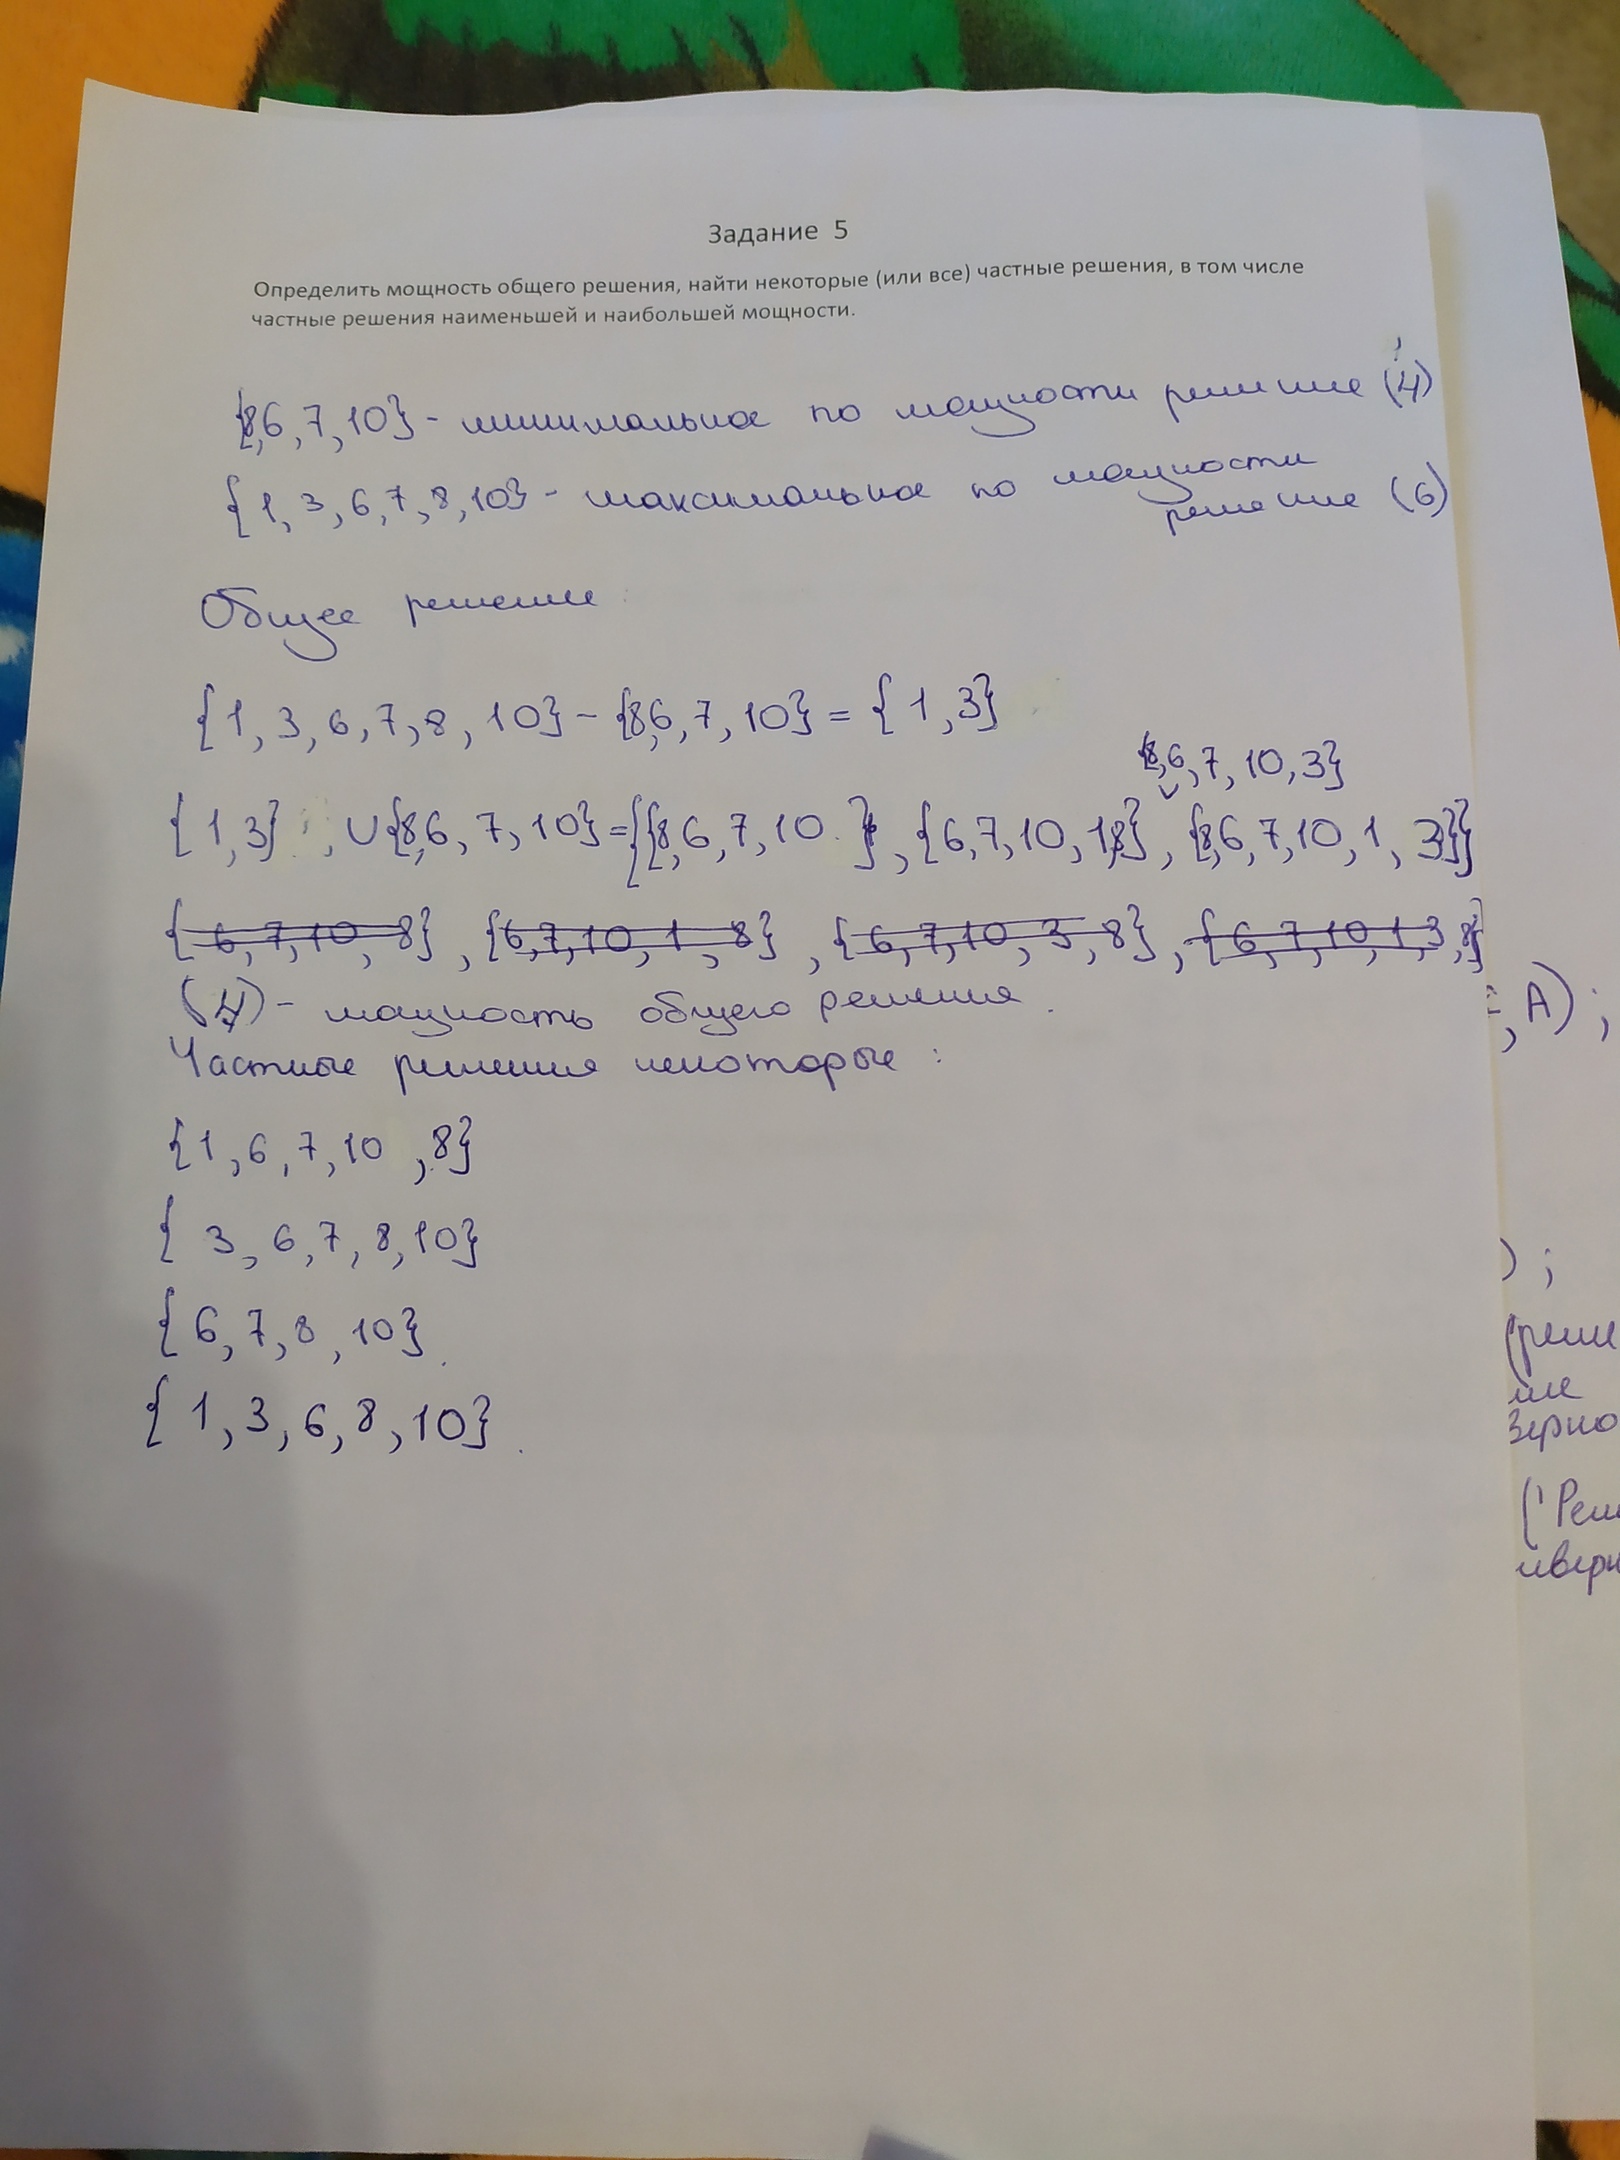 Задание 5
Определить мощность общего решения, найти некоторые (или все) частные решения, в том числе
частные решения наименьшей и наибольшей мощности.
{8,6,7,10} - минимальное по мощности решение (4)
{1,3,6,7,8,10} - максимальное по мощности
решение (6)
Общее решение
{1,3,6,7,8,10} - {8,6,7,10} = {1,3}
{8,6,7,10,3}
{1,3}, ∪{8,6,7,10}={{8,6,7,10}, {6,7,10,1,8}, {8,6,7,10,1,3}}
{6,7,10,8}, {6,7,10,1,8}, {6,7,10,3,8}, {6,7,10,1,3,8}
(4) - мощность общего решения.
Частные решения некоторые:
{1,6,7,10,8}
{3,6,7,8,10}
{6,7,8,10}.
{1,3,6,8,10}.
, A);
);
(реше
ние
Зерно
('Реш
неверн